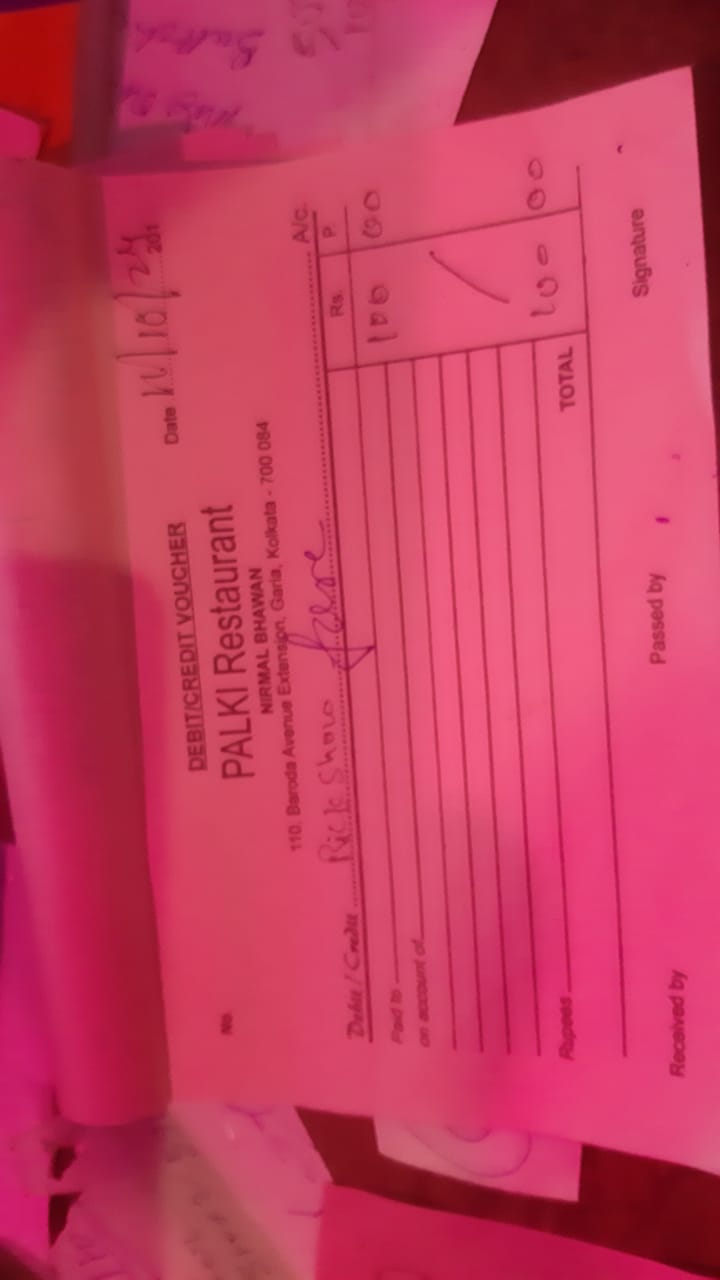 DEBIT/CREDIT VOUCHER
No. Date 11/10/24 201
PALKI Restaurant
NIRMAL BHAWAN
110, Baroda Avenue Extension, Garia, Kolkata - 700 084
Debit / Credit Rick Show fare A/c.
Rs. P.
Paid to 100 00
on account of
Rupees TOTAL 100 00
Received by Passed by Signature